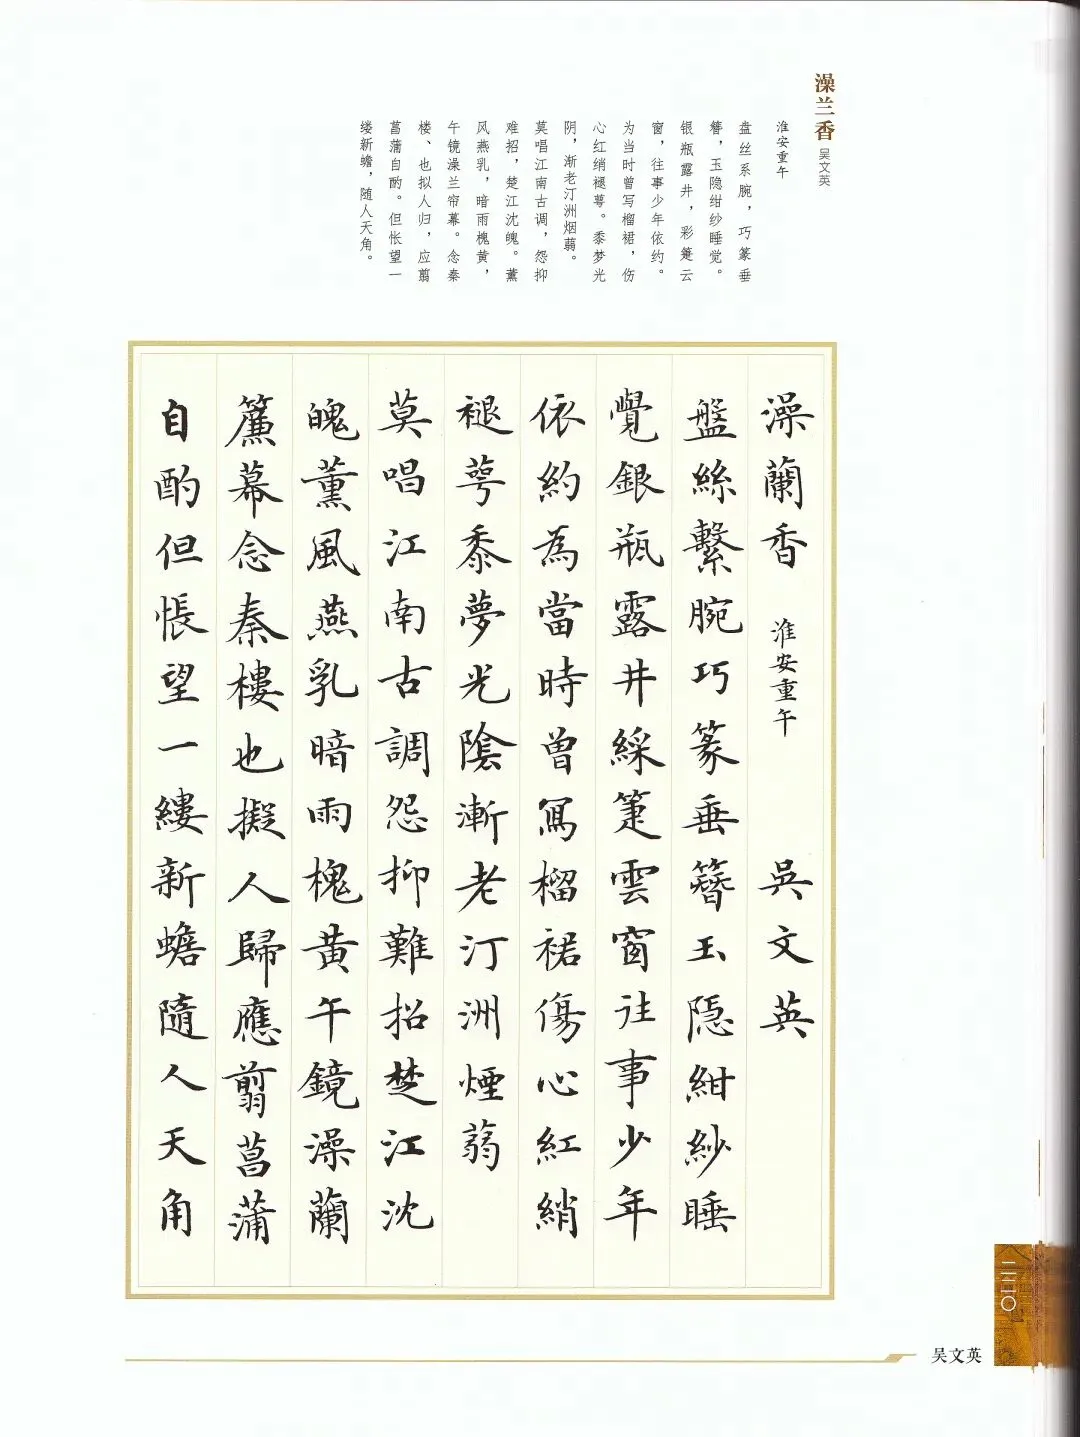 澡兰香
吴文英
淮安重午
盘丝系腕，巧篆垂
簪，玉隐绀纱睡觉。
银瓶露井，彩箑云
窗，往事少年依约。
为当时曾写榴裙，伤
心红绡褪萼。黍梦光
阴，渐老汀洲烟蒻。
莫唱江南古调，怨抑
难招，楚江沈魄。薰
风燕乳，暗雨槐黄，
午镜澡兰帘幕。念秦
楼、也拟人归，应翦
菖蒲自酌。但怅望一
缕新蟾，随人天角。
澡蘭香 淮安重午 吳文英
盤絲繫腕巧篆垂簪玉隱紺紗睡
覺銀瓶露井綵箑雲窗往事少年
依約為當時曾寫榴裙傷心紅綃
褪萼黍夢光陰漸老汀洲煙蒻
莫唱江南古調怨抑難招楚江沈
魄薰風燕乳暗雨槐黃午鏡澡蘭
簾幕念秦樓也擬人歸應翦菖蒲
自酌但悵望一縷新蟾隨人天角
吴文英
二二〇